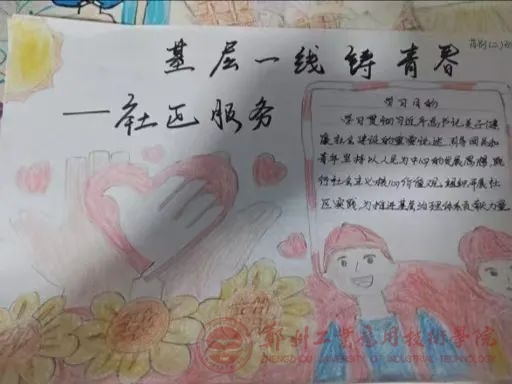 基层一线铸青春
——社区服务
学习目标
学习贯彻习近平总书记关于健
康社会建设的重要论述,引导团员和
青年坚持以人民为中心的发展思想,践
行社会主义核心价值观,组织开展社
区实践,为推进基层治理体系贡献力量
郑州工业应用技术学院
ZHENGZHOU UNIVERSITY OF INDUSTRIAL TECHNOLOGY